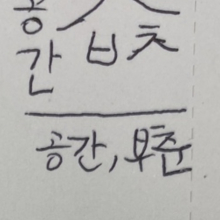 공
간 ㅂ ㅊ
공간, 부춘